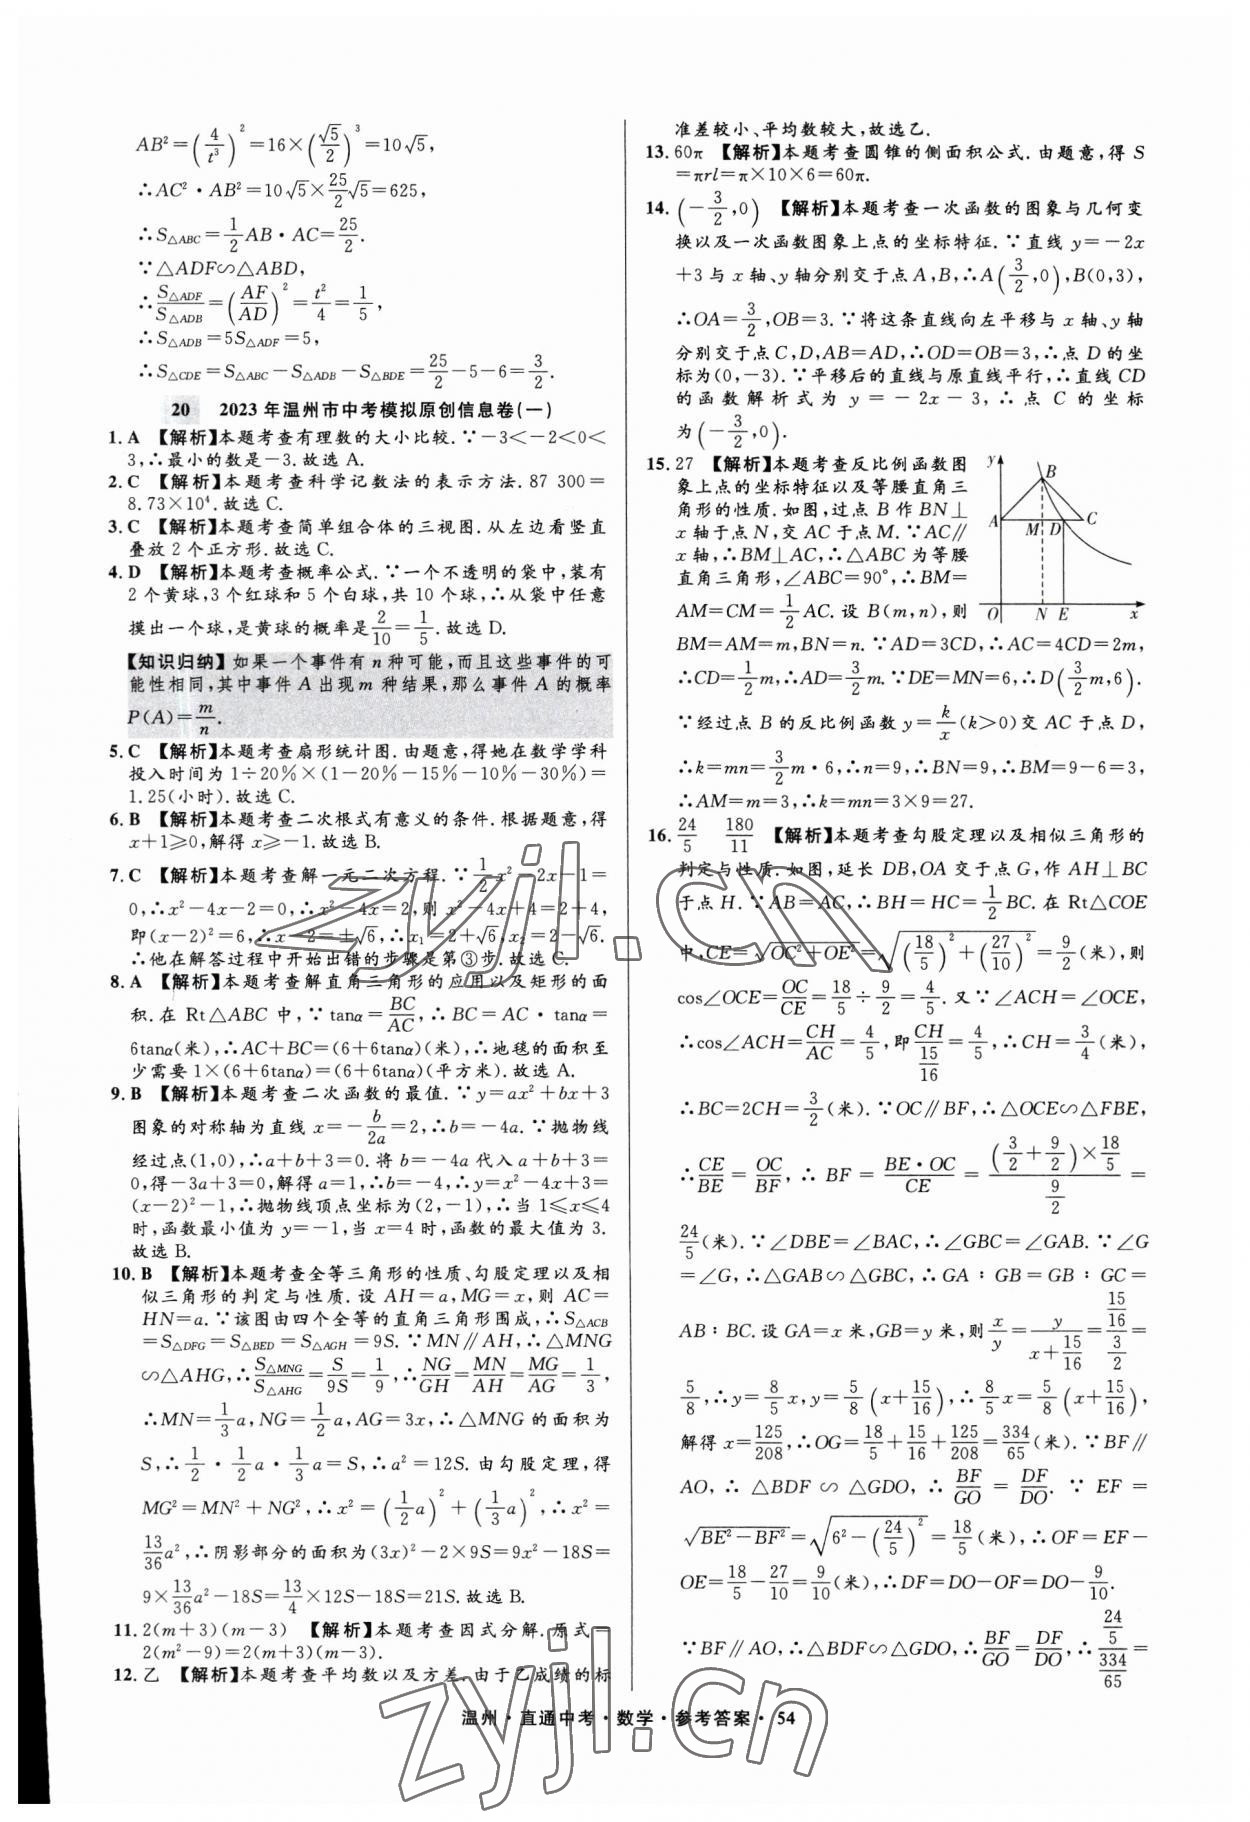 AB²=(4/t³)²=16×(√5/2)³=10√5,
∴AC²·AB²=10√5×25/2√5=625,
∴S△ABC=1/2AB·AC=25/2.
∵△ADF∽△ABD,
∴S△ADF/S△ADB=(AF/AD)²=t²/4=1/5,
∴S△ADB=5S△ADF=5,
∴S△CDE=S△ABC-S△ADB-S△BDE=25/2-5-6=3/2.
20 2023年温州市中考模拟原创信息卷(一)
1. A 【解析】本题考查有理数的大小比较.∵-3<-2<0<
3,∴最小的数是-3.故选A.
2. C 【解析】本题考查科学记数法的表示方法. 87 300=
8.73×10⁴.故选C.
3. C 【解析】本题考查简单组合体的三视图.从左边看竖直
叠放2个正方形.故选C.
4. D 【解析】本题考查概率公式.∵一个不透明的袋中,装有
2个黄球,3个红球和5个白球,共10个球,∴从袋中任意
摸出一个球,是黄球的概率是2/10=1/5.故选D.
【知识归纳】如果一个事件有n种可能,而且这些事件的可
能性相同,其中事件A出现m种结果,那么事件A的概率
P(A)=m/n.
5. C 【解析】本题考查扇形统计图.由题意,得她在数学学科
投入时间为1÷20%×(1-20%-15%-10%-30%)=
1.25(小时).故选C.
6. B 【解析】本题考查二次根式有意义的条件.根据题意,得
x+1≥0,解得x≥-1.故选B.
7. C 【解析】本题考查解一元二次方程.∵1/2x²-2x-1=
0,∴x²-4x-2=0,∴x²-4x=2,则x²-4x+4=2+4,
即(x-2)²=6,∴x-2=±√6,∴x₁=2+√6,x₂=2-√6.
∴他在解答过程中开始出错的步骤是第③步.故选C.
8. A 【解析】本题考查解直角三角形的应用以及矩形的面
积.在Rt△ABC中,∵tanα=BC/AC,∴BC=AC·tanα=
6tanα(米),∴AC+BC=(6+6tanα)(米),∴地毯的面积至
少需要1×(6+6tanα)=(6+6tanα)(平方米).故选A.
9. B 【解析】本题考查二次函数的最值.∵y=ax²+bx+3
图象的对称轴为直线x=-b/2a=2,∴b=-4a.∵抛物线
经过点(1,0),∴a+b+3=0.将b=-4a代入a+b+3=
0,得-3a+3=0,解得a=1,∴b=-4,∴y=x²-4x+3=
(x-2)²-1,∴抛物线顶点坐标为(2,-1),∴当1≤x≤4
时,函数最小值为y=-1,当x=4时,函数的最大值为3.
故选B.
10. B 【解析】本题考查全等三角形的性质、勾股定理以及相
似三角形的判定与性质.设AH=a,MG=x,则AC=
HN=a.∵该图由四个全等的直角三角形围成,∴S△ACB
=S△DFG=S△BED=S△AGH=9S.∵MN∥AH,∴△MNG
∽△AHG,∴S△MNG/S△AHG=S/9S=1/9,∴NG/GH=MN/AH=MG/AG=1/3,
∴MN=1/3a,NG=1/2a,AG=3x,∴△MNG的面积为
S,∴1/2·1/2a·1/3a=S,∴a²=12S.由勾股定理,得
MG²=MN²+NG²,∴x²=(1/2a)²+(1/3a)²,∴x²=
13/36a²,∴阴影部分的面积为(3x)²-2×9S=9x²-18S=
9×13/36a²-18S=13/4×12S-18S=21S.故选B.
11. 2(m+3)(m-3) 【解析】本题考查因式分解.原式=
2(m²-9)=2(m+3)(m-3).
12. 乙 【解析】本题考查平均数以及方差.由于乙成绩的标
准差较小、平均数较大,故选乙.
13. 60π 【解析】本题考查圆锥的侧面积公式.由题意,得S
=πrl=π×10×6=60π.
14. (-3/2,0) 【解析】本题考查一次函数的图象与几何变
换以及一次函数图象上点的坐标特征.∵直线y=-2x
+3与x轴、y轴分别交于点A,B,∴A(3/2,0),B(0,3),
∴OA=3/2,OB=3.∵将这条直线向左平移与x轴、y轴
分别交于点C,D,AB=AD,∴OD=OB=3,∴点D的坐
标为(0,-3).∵平移后的直线与原直线平行,∴直线CD
的函数解析式为y=-2x-3,∴点C的坐标
为(-3/2,0).
15. 27 【解析】本题考查反比例函数图
象上点的坐标特征以及等腰直角三
角形的性质.如图,过点B作BN⊥
x轴于点N,交AC于点M.∵AC∥
x轴,∴BM⊥AC,∴△ABC为等腰
直角三角形,∠ABC=90°,∴BM=
AM=CM=1/2AC.设B(m,n),则
y B A M D C O N E x
BM=AM=m,BN=n.∵AD=3CD,∴AC=4CD=2m,
∴CD=1/2m,∴AD=3/2m.∵DE=MN=6,∴D(3/2m,6).
∵经过点B的反比例函数y=k/x(k>0)交AC于点D,
∴k=mn=3/2m·6,∴n=9,∴BN=9,∴BM=9-6=3,
∴AM=m=3,∴k=mn=3×9=27.
16. 24/5 180/11 【解析】本题考查勾股定理以及相似三角形的
判定与性质.如图,延长DB,OA交于点G,作AH⊥BC
于点H.∵AB=AC,∴BH=HC=1/2BC.在Rt△COE
中,CE=√OC²+OE²=√(18/5)²+(27/10)²=9/2(米),则
cos∠OCE=OC/CE=18/5÷9/2=4/5.又∵∠ACH=∠OCE,
∴cos∠ACH=CH/AC=4/5,即CH/(15/16)=4/5,∴CH=3/4(米),
∴BC=2CH=3/2(米).∵OC∥BF,∴△OCE∽△FBE,
∴CE/BE=OC/BF,∴BF=BE·OC/CE=(3/2+9/2)×18/5/(9/2)=
24/5(米).∵∠DBE=∠BAC,∴∠GBC=∠GAB.∵∠G
=∠G,∴△GAB∽△GBC,∴GA∶GB=GB∶GC=
AB∶BC.设GA=x米,GB=y米,则x/y=y/(x+15/16)=(15/16)/(3/2)=
5/8,∴y=8/5x,y=5/8(x+15/16),∴8/5x=5/8(x+15/16),
解得x=125/208,∴OG=18/5+15/16+125/208=334/65(米).∵BF∥
AO,∴△BDF∽△GDO,∴BF/GO=DF/DO.∵EF=
√BE²-BF²=√6²-(24/5)²=18/5(米),∴OF=EF-
OE=18/5-27/10=9/10(米),∴DF=DO-OF=DO-9/10.
∵BF∥AO,∴△BDF∽△GDO,∴BF/GO=DF/DO,∴(24/5)/(334/65)=
温州·直通中考·数学·参考答案·54
zyjl.cn
zyjl.cn